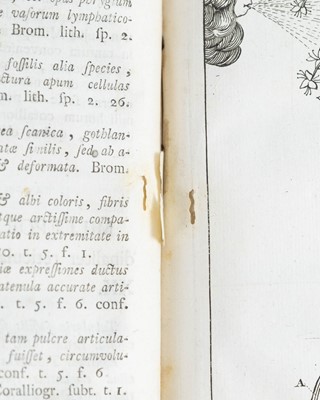 e vasorum lymphatico-
Brom. lith. ſp. 2.
foſſilis alia ſpecies,
ctura apum cellulas
m. lith. ſp. 2. 26.
ea ſcanica, gothlan-
ſed ab a-
& deformata. Brom.
& albi coloris, fibris
que arctiſſime compa-
atio in extremitate in
o. t. 5. f. 1.
iæ expreſſiones ductus
ntenula accurate arti-
. t. 5. f. 6. conf.
tam pulcre articula-
fuiſſet, circumvolu-
conf. t. 5. f. 6
Coralliogr. ſubt. t. 1.
A.